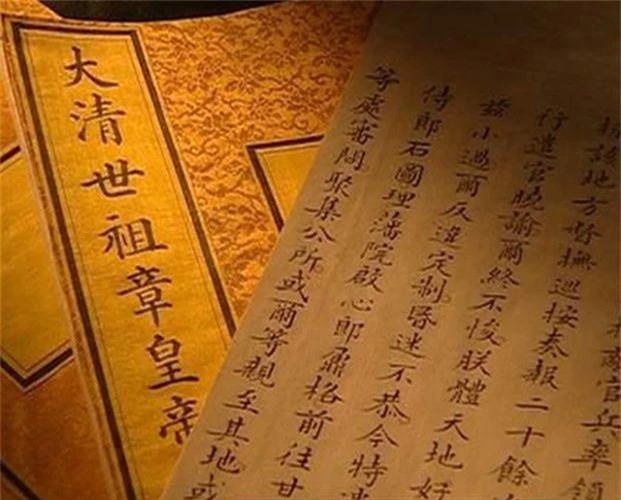 大清世祖章皇帝
官兵率領
該地方督撫巡按奏報二十餘
行遣官曉諭爾終不悛朕體天地好
茲小過爾反違定制昏迷不恭今特
侍郎石圖理藩院啟心郎鼐格前往甘
等處審問聚集公所或爾等親至其地或